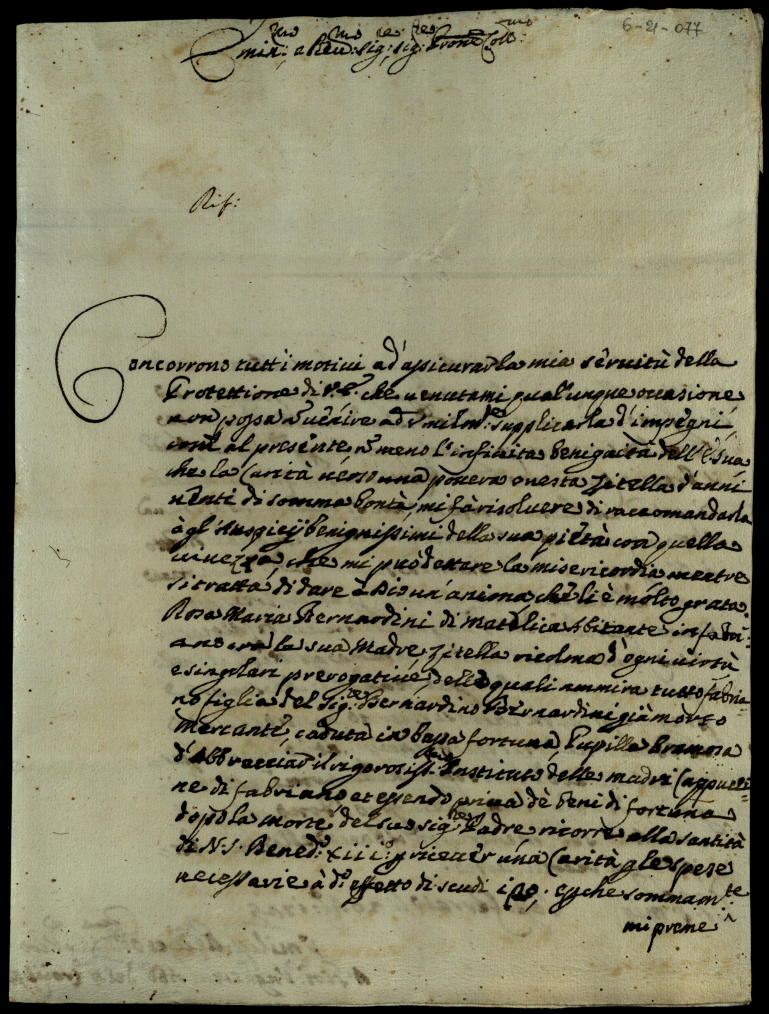 6-21-077
Emin:mo e Reu:mo Sig:re Sig:re Prone Coll:mo
Rif:
Concorrono tutt'i motivi ad'assicurar la mia seruitù della
Protettione di V.E. che uenutami qual'unque occasione
non possa uenire ad supplicarla d'impegni,
come al presente meno l'infinita benignità dell'E. Sua
che la Carità uerso una pouera onesta Zitella d'anni
uenti di somma bontà, mi fà risoluere di raccomandarla
à gl'Auspicij benignissimi della sua pietà con quella
uiuezza, che mi può dettare la misericordia mentre
si tratta di dare à Dio un'anima, che li è molto grata.
Rosa Maria Bernardini di Matelica Abitante in fabri:
ano con la sua Madre Zitella ricolma d'ogni uirtù
e singolari prerogatiue, delle quali ammira tutto fabria-
no figlia del Sig:re Bernardino Bernardini già morto
Mercante, caduta in bassa fortuna, Pupilla Bramosa
d'Abbracciar il rigorosiss:mo Instituto delle madri Cappucci-
ne di fabriano et essendo priua dè beni di fortuna
dopo la morte del suo Sig:re Padre ricorre alla santità
di N.S. Bened:o XIII:o p riceuer una Carità p le spese
necessarie à d:o effetto di scudi che sommam:te
mi preme